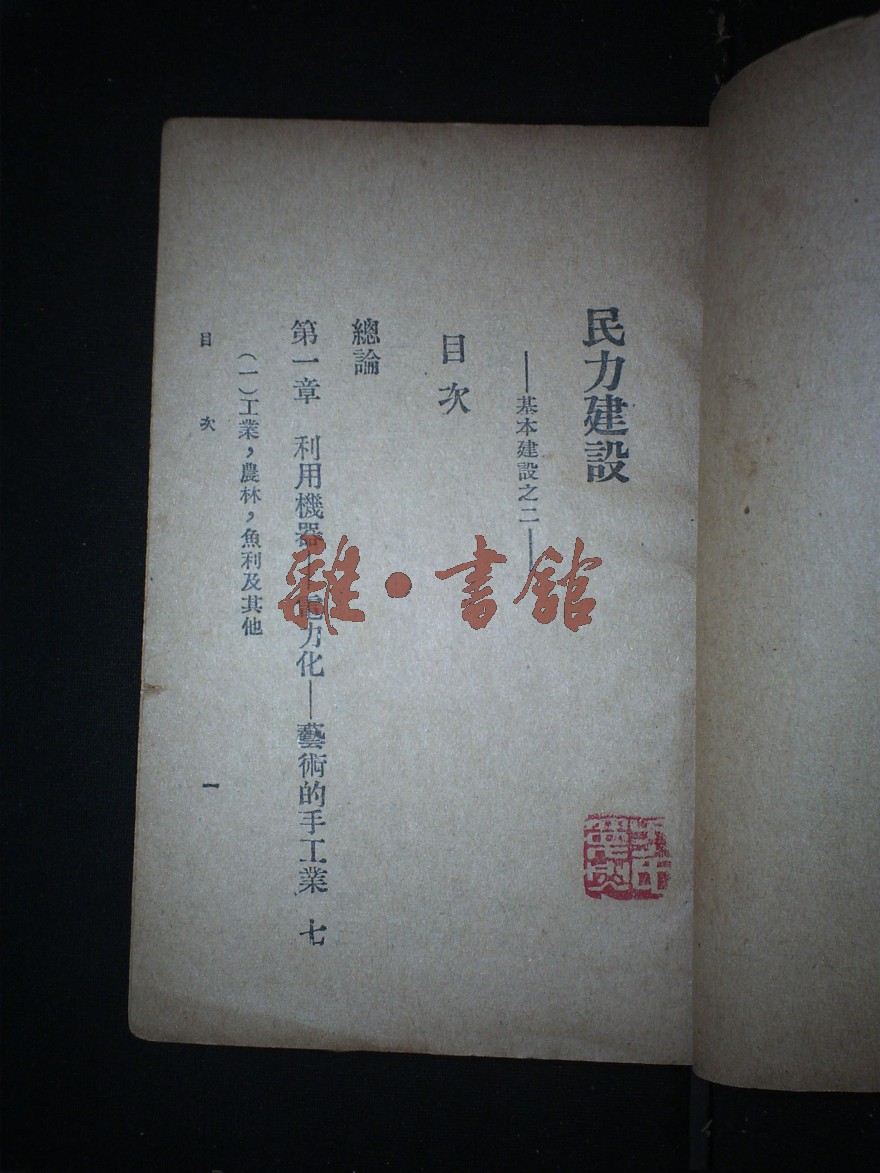 民力建設
——基本建設之二——
目次
總論
第一章　利用機器—電力化—藝術的手工業　七
(一)工業，農林，魚利及其他
目次　一
雜·書館